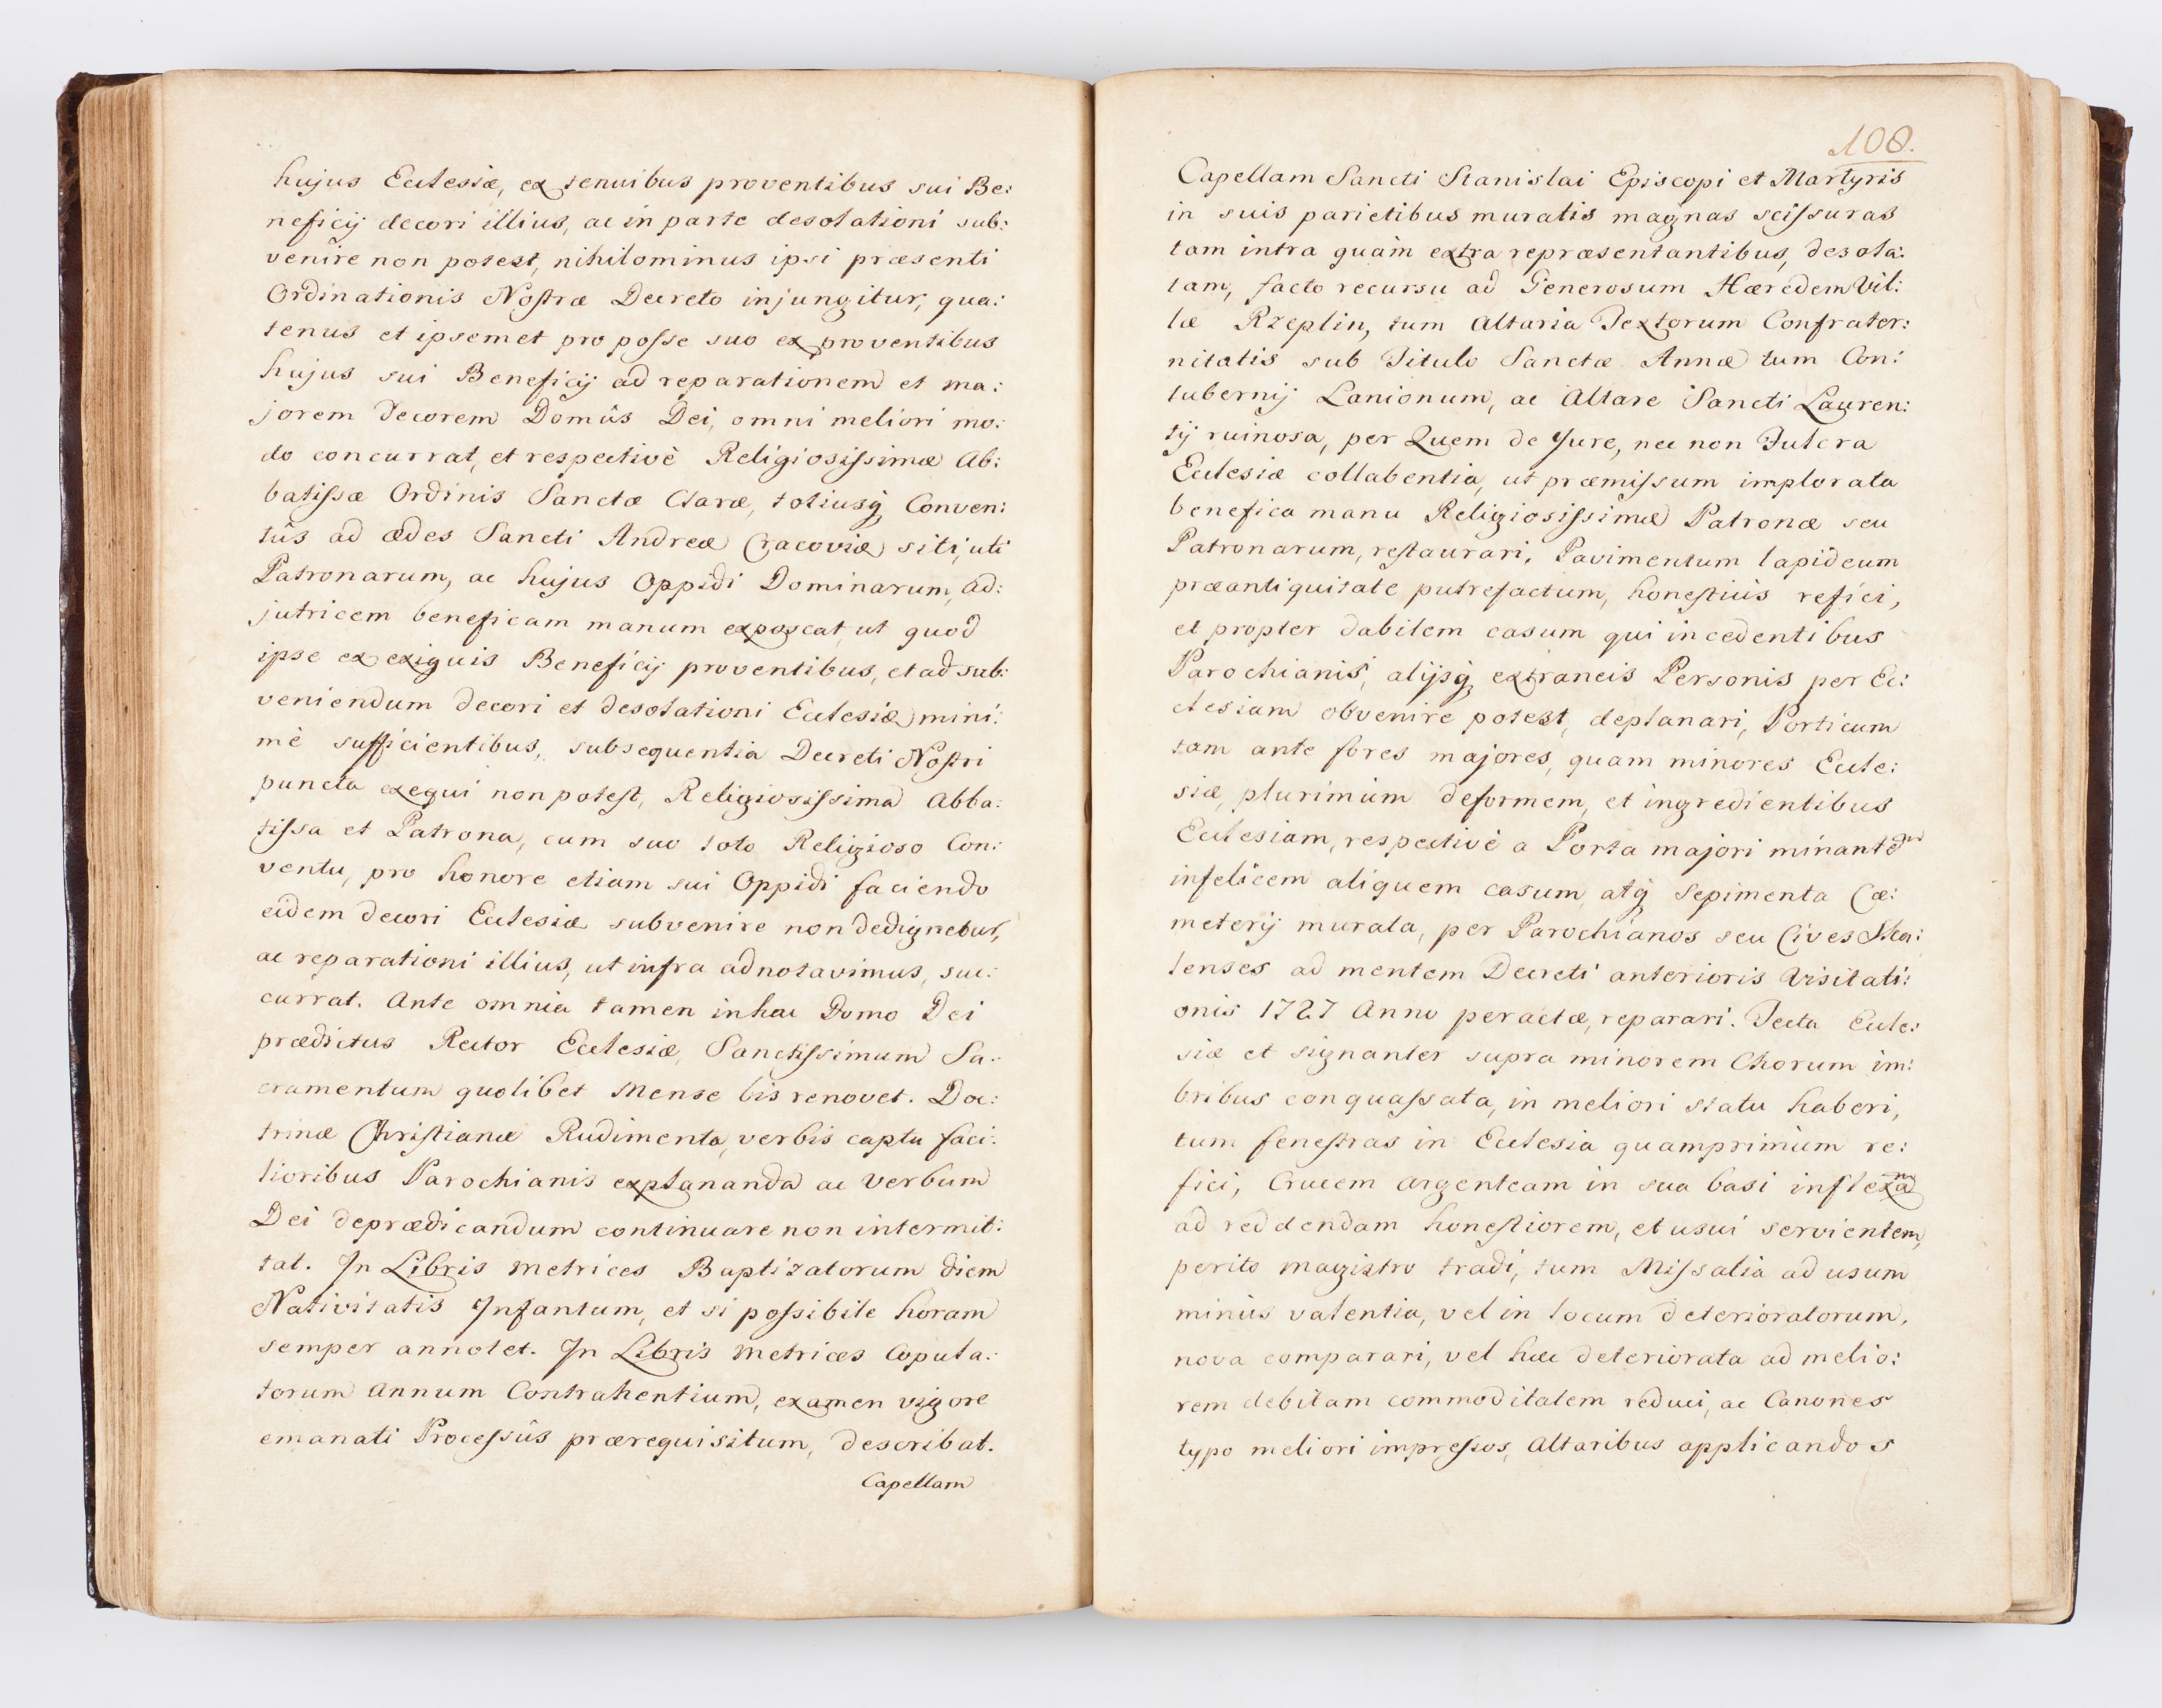 hujus Ecclesiæ, ex tenuibus proventibus sui Be:
neficij decori illius, ac in parte desolationi sub:
venire non potest, nihilominus ipsi præsenti
Ordinationis Nostræ Decreto injungitur, qua:
tenus et ipsemet pro posse suo ex proventibus
hujus sui Beneficij ad reparationem et ma:
jorem decorem Domûs Dei, omni meliori mo:
do concurrat, et respectivè Religiosissimæ Ab:
batissæ Ordinis Sanctæ Claræ, totiusq; Conven:
tûs ad ædes Sancti Andreæ Cracoviæ siti, uti
Patronarum, ac hujus Oppidi Dominarum, ad:
jutricem beneficam manum exposcat, ut quod
ipse ex exiguis Beneficij proventibus, et ad sub:
veniendum decori et desolationi Ecclesiæ mini:
mè sufficientibus, subsequentia Decreti Nostri
puncta exequi non potest, Religiosissima Abba:
tissa et Patrona, cum suo toto Religioso Con:
ventu, pro honore etiam sui Oppidi faciendo
eidem decori Ecclesiæ subvenire non dedignetur,
ac reparationi illius, ut infra adnotavimus, suc:
currat. Ante omnia tamen in hac Domo Dei
prædictus Rector Ecclesiæ, Sanctissimum Sa:
cramentum quolibet Mense bis renovet. Doc:
trinæ Christianæ Rudimenta, verbis captu faci:
lioribus Parochianis explananda ac Verbum
Dei deprædicandum continuare non intermit:
tat. In Libris Metrices Baptizatorum diem
Nativitatis Infantum, et si possibile horam
semper annotet. In Libris Metrices Copula:
torum Annum Contrahentium, examen vigore
emanati Processûs prærequisitum, describat.
Capellam
108.
Capellam Sancti Stanislai Episcopi et Martyris
in suis parietibus muratis magnas scissuras
tam intra quam extra repræsentantibus, desola:
tam, facto recursu ad Generosum Hæredem Vil:
læ Rzeplin, tum Altaria Textorum Confrater:
nitatis sub Titulo Sanctæ Annæ tum Con:
tubernij Lanionum, ac Altare Sancti Lauren:
tij ruinosa, per Quem de Jure, nec non Fulcra
Ecclesiæ collabentia, ut præmissum implorata
benefica manu Religiosissimæ Patronæ seu
Patronarum, restaurari. Pavimentum lapideum
præantiquitate putrefactum, honestiùs refici,
et propter dabilem casum qui incedentibus
Parochianis, alijsq; extraneis Personis per Ec:
clesiam obvenire potest, deplanari, Porticum
tam ante fores majores, quam minores Eccle:
siæ, plurimùm deformem, et ingredientibus
Ecclesiam, respectivè a Porta majori minantem
infelicem aliquem casum, atq; sepimenta Cæ:
meterij murata, per Parochianos seu Cives Ska:
lenses ad mentem Decreti anterioris Visitati:
onis 1727 Anno peractæ, reparari. Tecta Eccle:
siæ et signanter supra minorem Chorum im:
bribus conquassata, in meliori statu haberi,
tum fenestras in Ecclesia quamprimùm re:
fici, Crucem argenteam in sua basi inflexam
ad reddendam honestiorem, et usui servientem,
perito magistro tradi, tum Missalia ad usum
minùs valentia, vel in locum deterioratorum,
nova comparari, vel hæc deteriorata ad melio:
rem debitam commoditatem reduci, ac Canones
typo meliori impressos, Altaribus applicandos